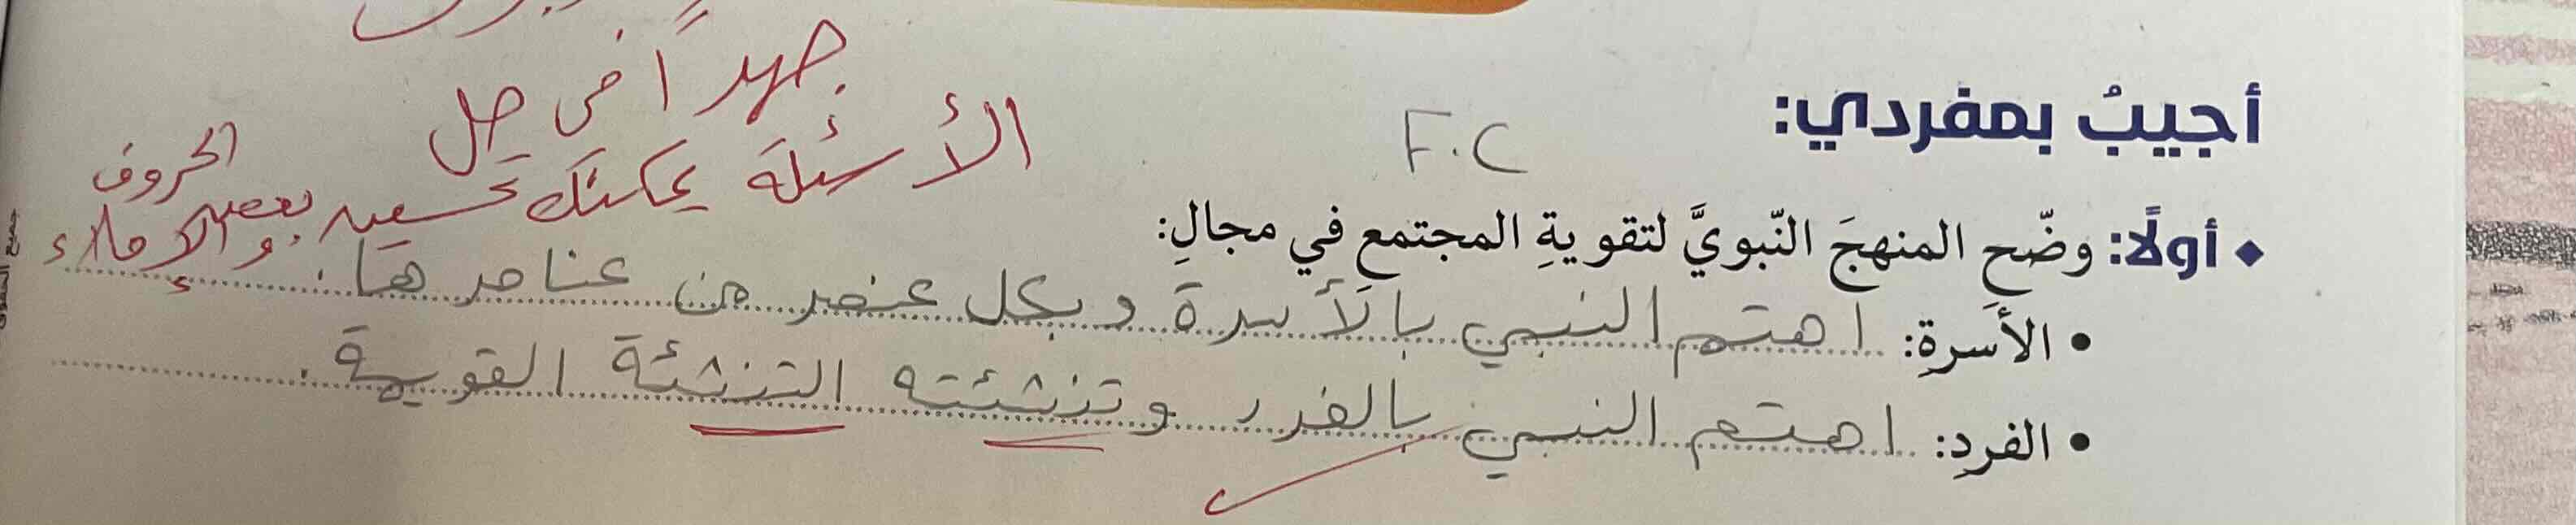 جهداً في حل
الأسئلة يمكنك تحسين بعض الحروف
والإملاء
أجيبُ بمفردي:
F.C
◆ أولًا: وضّح المنهجَ النّبويَّ لتقويةِ المجتمع في مجالِ:
• الأسرة: اهتم النبي بالأسرة وبكل عنصر من عناصرها.
• الفرد: اهتم النبي بالفرد وتنشئته التنشئة القويمة.